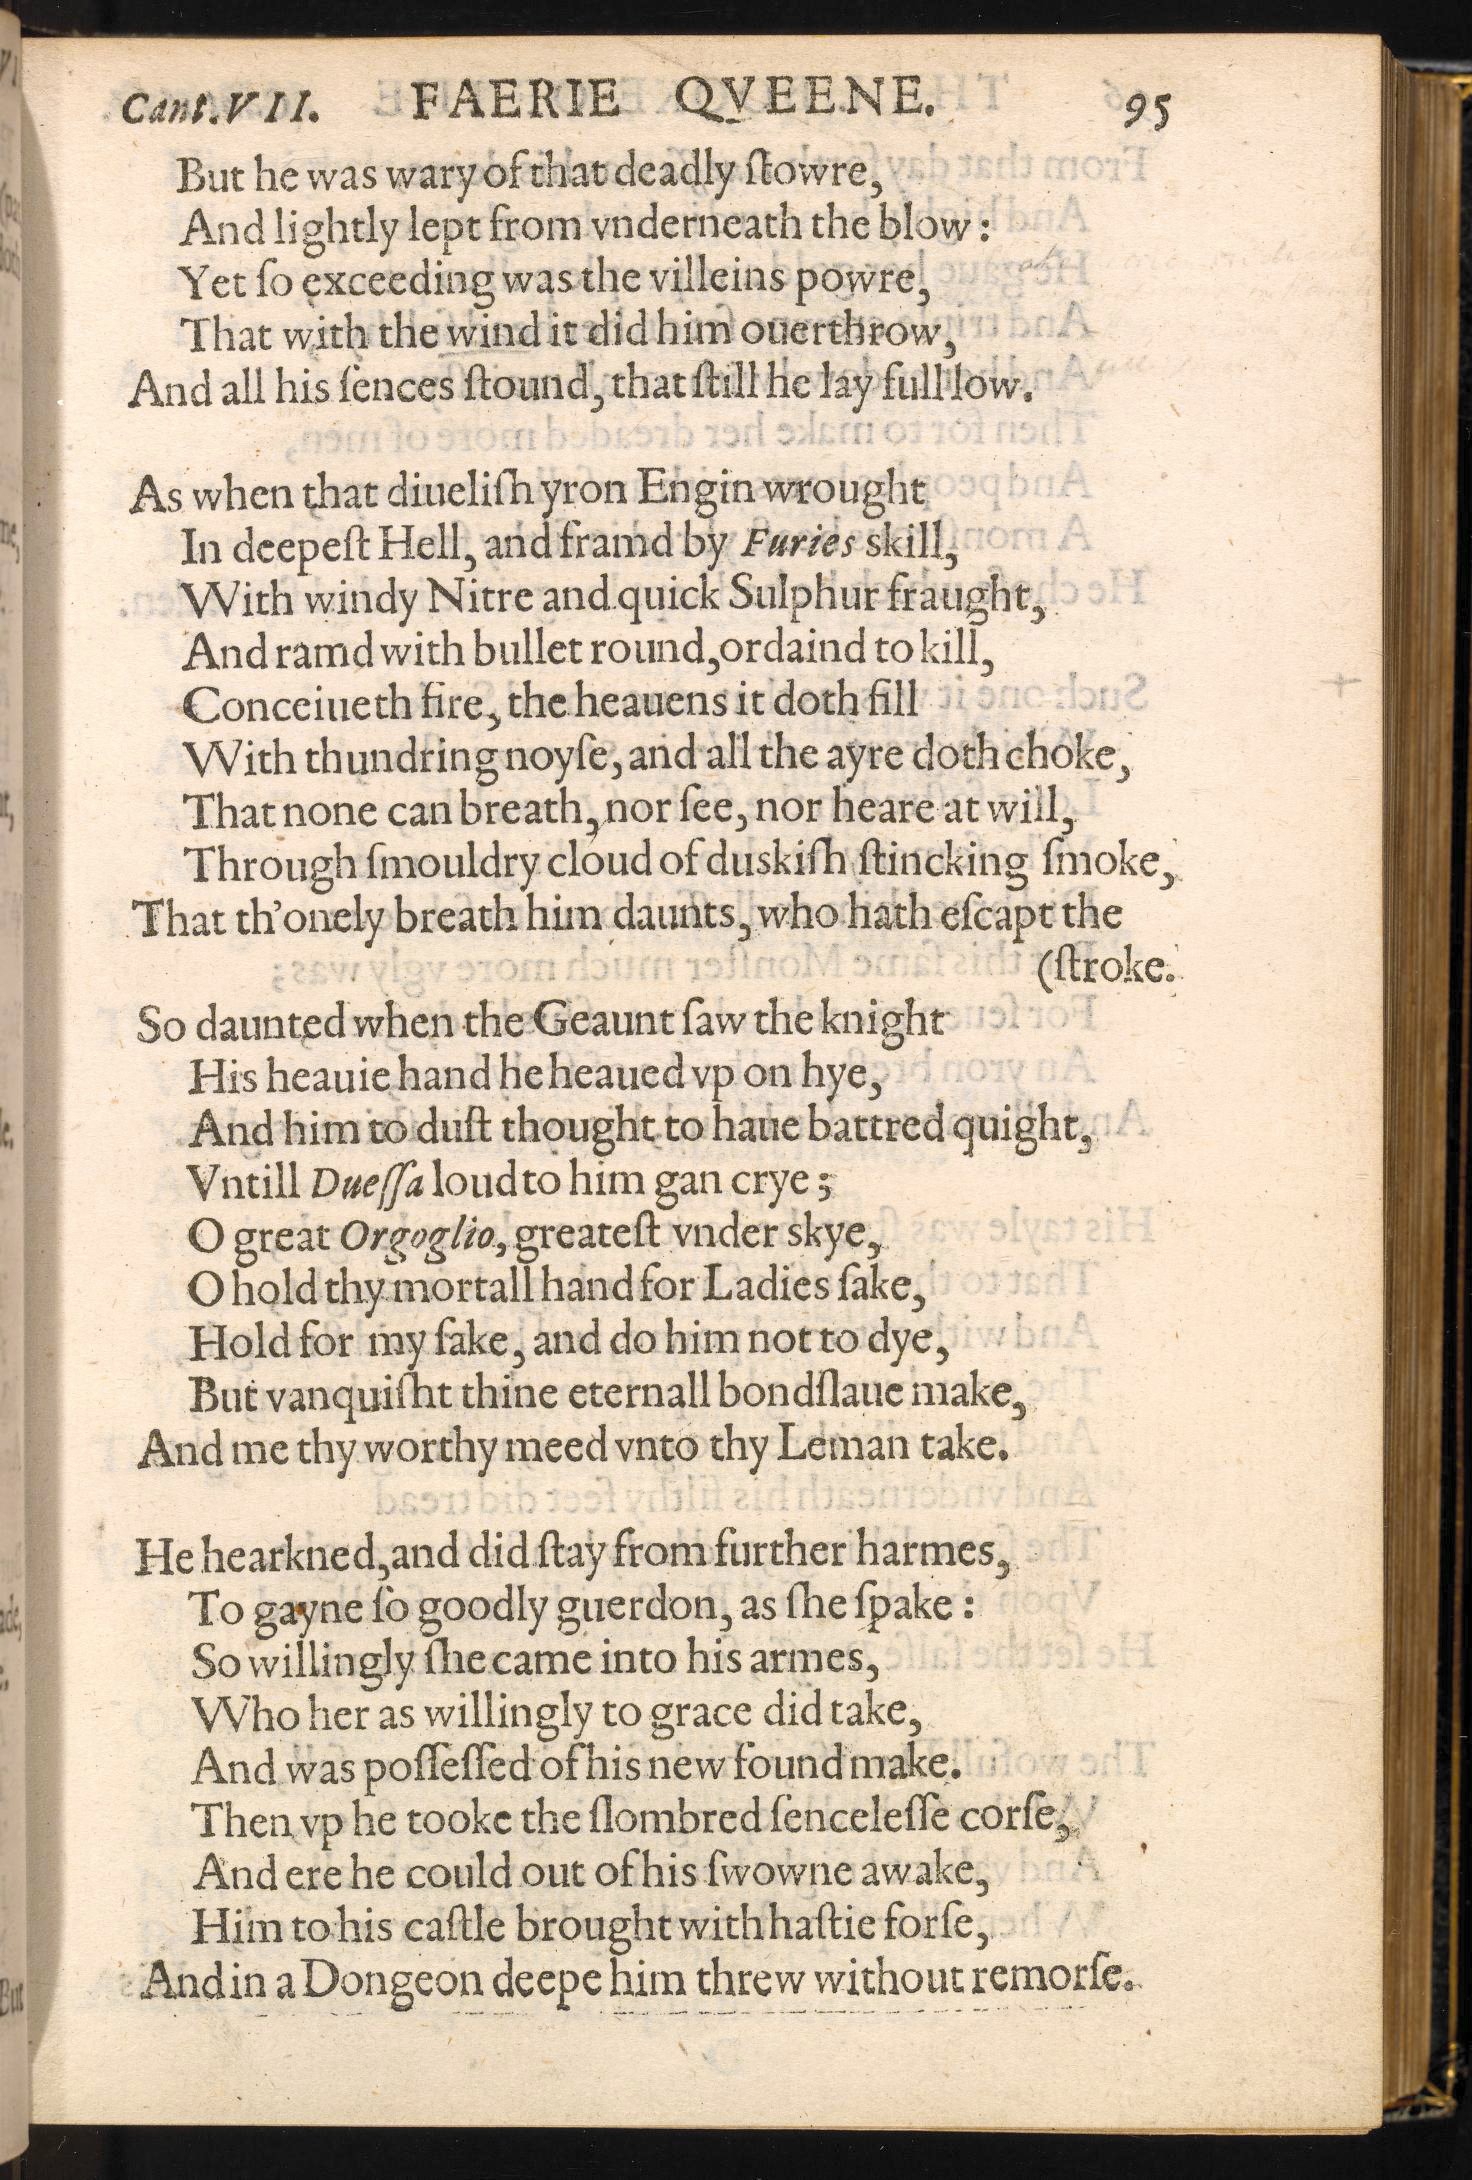 Cant. VII. FAERIE QVEENE. 95
But he was wary of that deadly ſtowre,
And lightly lept from vnderneath the blow:
Yet ſo exceeding was the villeins powre,
That with the wind it did him ouerthrow,
And all his ſences ſtound, that ſtill he lay full low.
As when that diueliſh yron Engin wrought
In deepeſt Hell, and framd by Furies skill,
With windy Nitre and quick Sulphur fraught,
And ramd with bullet round, ordaind to kill,
Conceiueth fire, the heauens it doth fill
With thundring noyſe, and all the ayre doth choke,
That none can breath, nor ſee, nor heare at will,
Through ſmouldry cloud of duskiſh ſtincking ſmoke,
That th'onely breath him daunts, who hath eſcapt the
(ſtroke.
So daunted when the Geaunt ſaw the knight
His heauie hand he heaued vp on hye,
And him to duſt thought to haue battred quight,
Vntill Dueſſa loud to him gan crye;
O great Orgoglio, greateſt vnder skye,
O hold thy mortall hand for Ladies ſake,
Hold for my ſake, and do him not to dye,
But vanquiſht thine eternall bondſlaue make,
And me thy worthy meed vnto thy Leman take.
He hearkned, and did ſtay from further harmes,
To gayne ſo goodly guerdon, as ſhe ſpake:
So willingly ſhe came into his armes,
Who her as willingly to grace did take,
And was poſſeſſed of his new found make.
Then vp he tooke the ſlombred ſenceleſſe corſe,
And ere he could out of his ſwowne awake,
Him to his caſtle brought with haſtie forſe,
And in a Dongeon deepe him threw without remorſe.